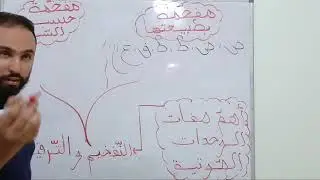 مفخمة
بطبيعتها
مفخمة
حسب
ص، ض، ط، ظ، ق، غ
أهم صفات
الوحدات
الصوتية
التفخيم